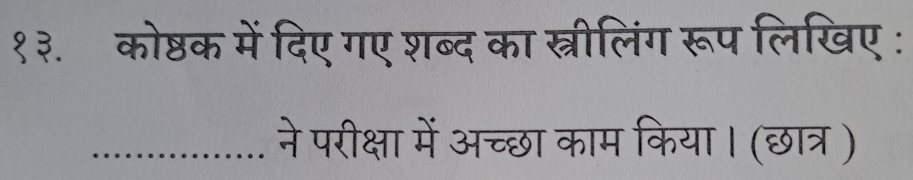 १३. कोष्ठक में दिए गए शब्द का स्त्रीलिंग रूप लिखिए :
................ ने परीक्षा में अच्छा काम किया। (छात्र )